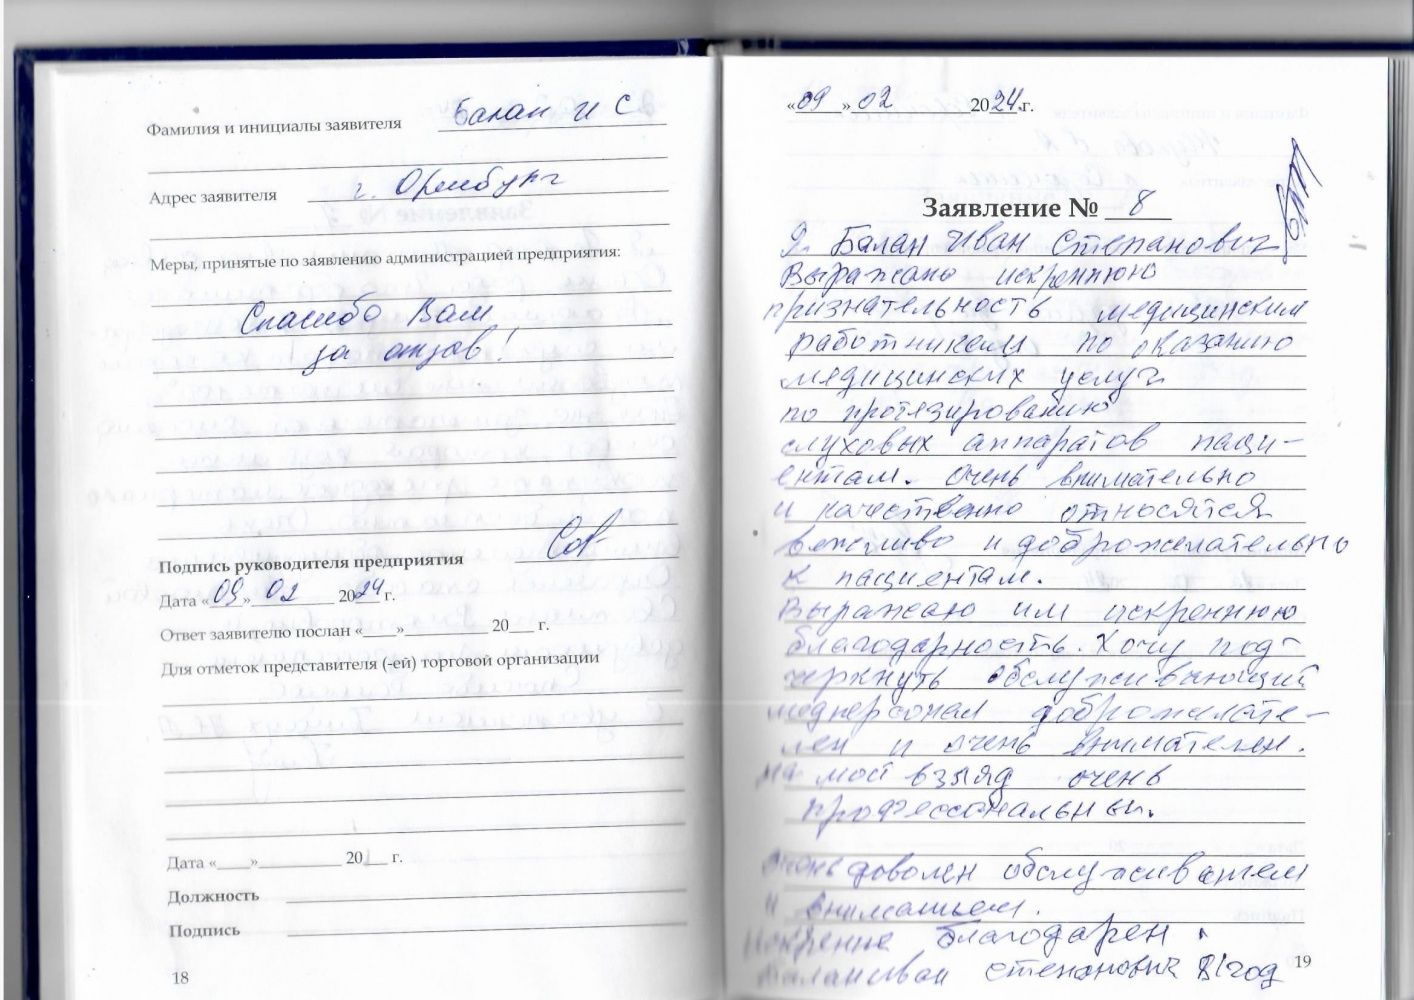 Фамилия и инициалы заявителя Балан И С
Адрес заявителя г. Оренбург
Меры, принятые по заявлению администрацией предприятия:
Спасибо Вам
за отзыв!
Подпись руководителя предприятия
Дата «09» 02 2024 г.
Ответ заявителю послан «___»________ 20__ г.
Для отметок представителя (-ей) торговой организации
Дата «___»________ 20__ г.
Должность
Подпись
18
«09» 02 2024.г.
Заявление № 8
Я. Балан Иван Степанович
Выражаю искреннюю
признательность медицинским
работникам по оказанию
медицинских услуг
по протезированию
слуховых аппаратов паци-
ентам. Очень внимательно
и качественно относятся
вежливо и доброжелательно
к пациентам.
Выражаю им искреннюю
благодарность. Хочу под-
черкнуть обслуживающий
медперсонал доброжелате-
лен и очень внимателен.
На мой взгляд очень
профессиональны.
Очень доволен обслуживанием
и вниманием.
Искренне благодарен.
Балан Иван Степанович 81 год
19